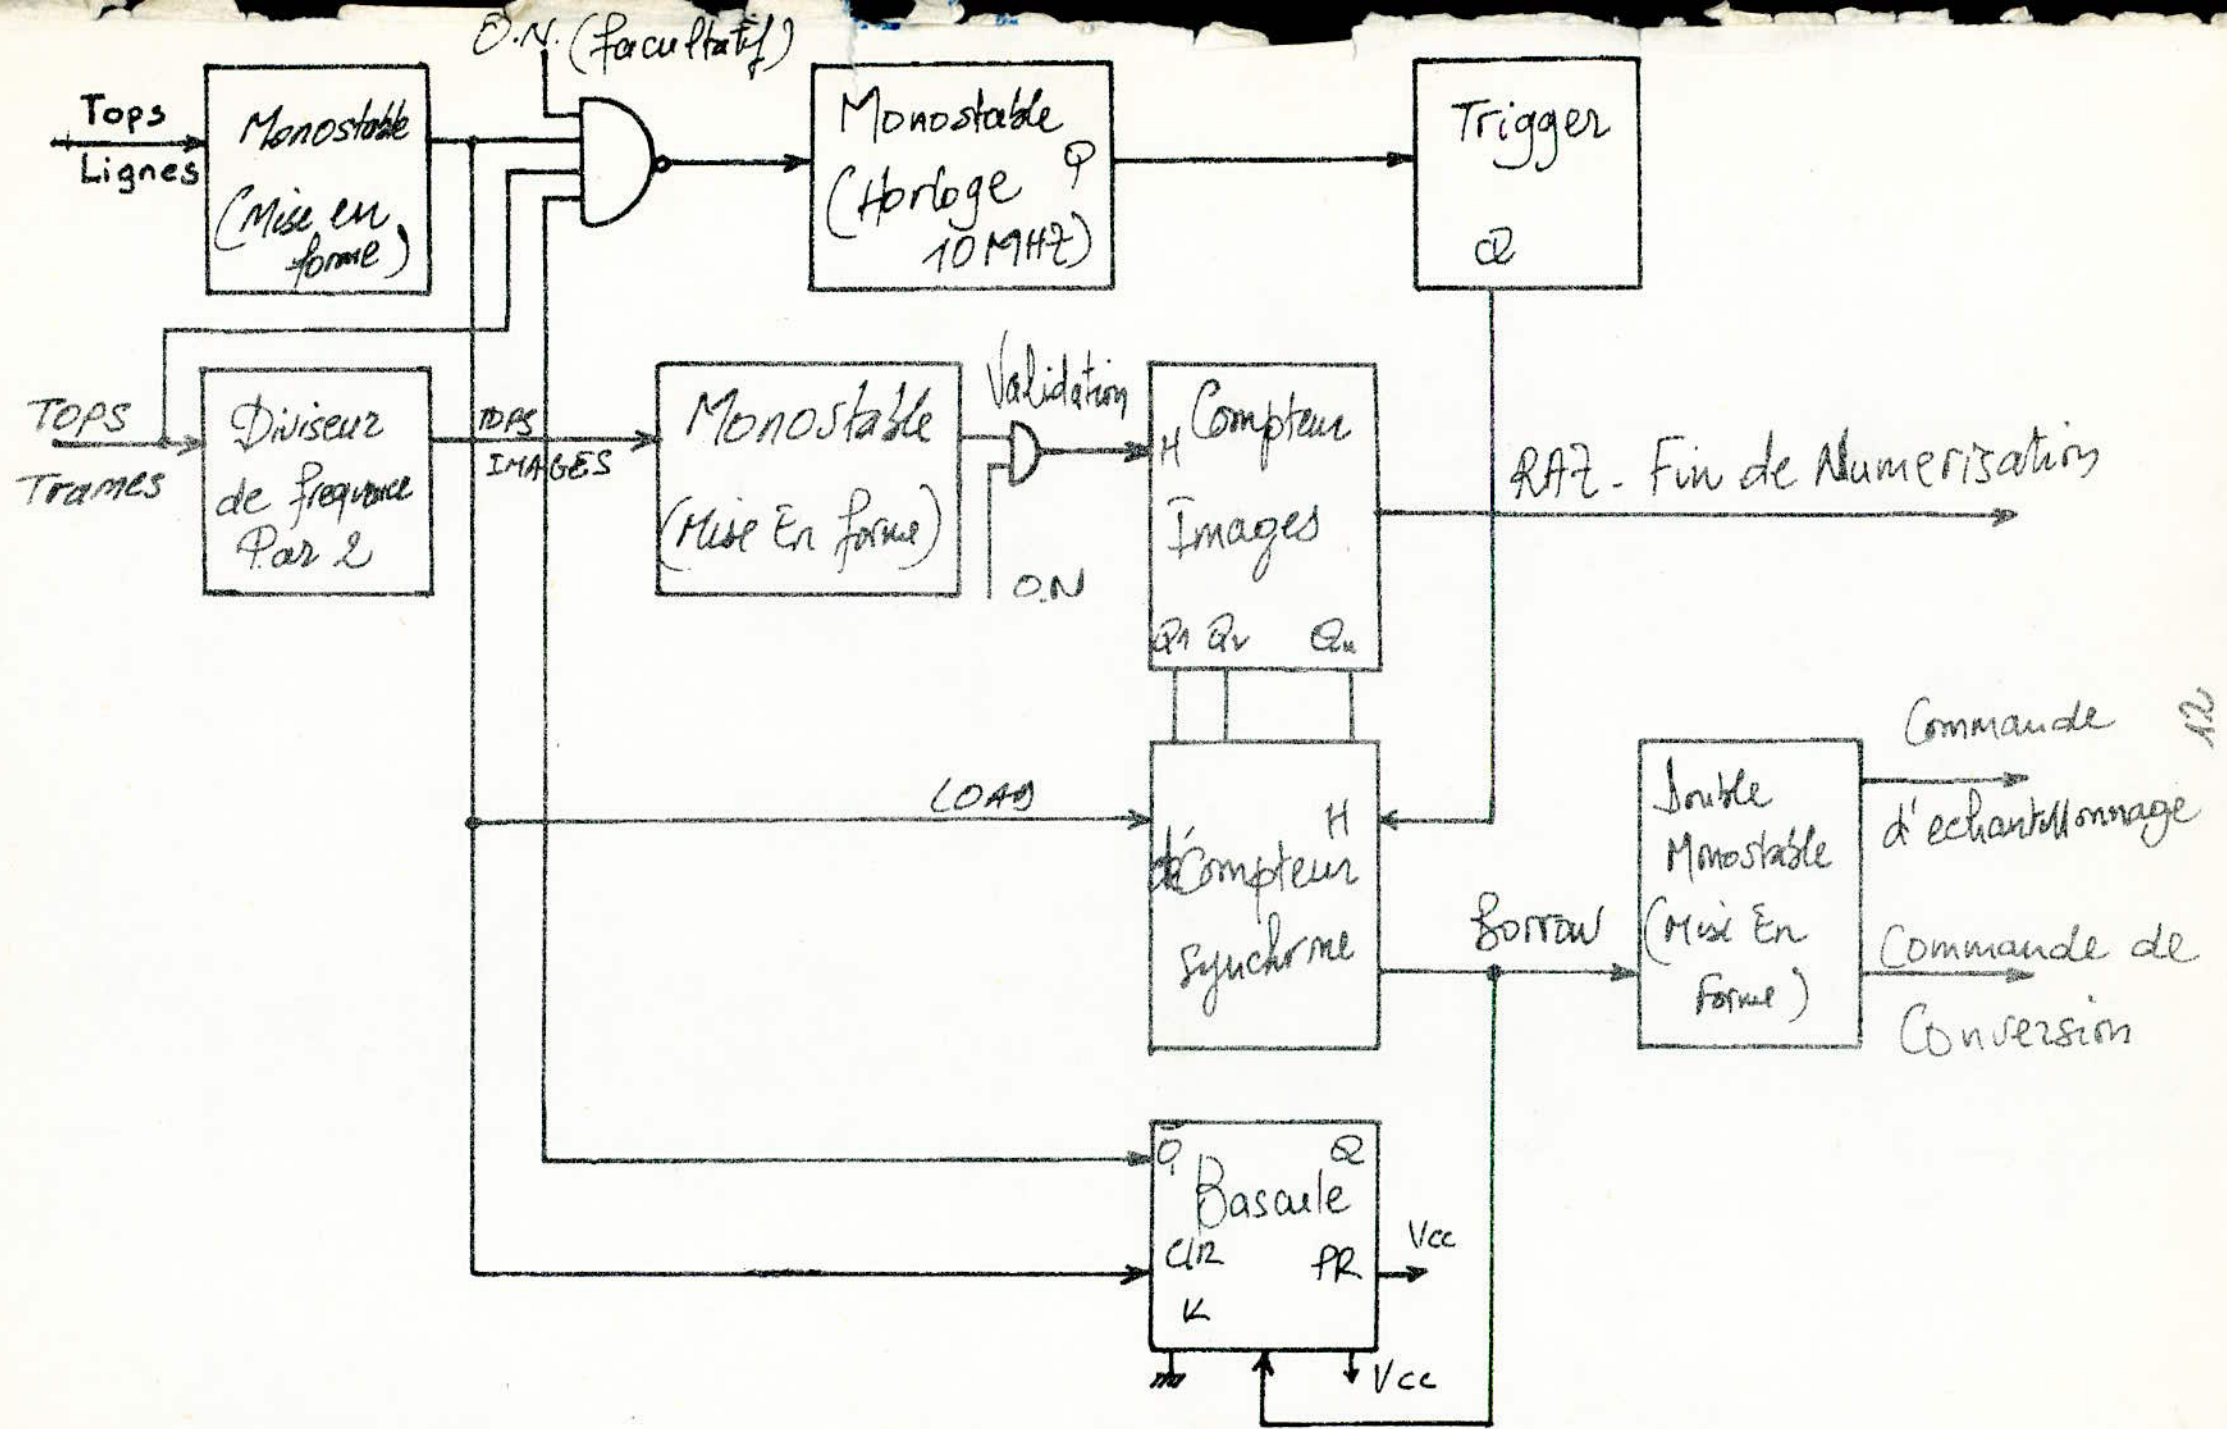 O.N. (facultatif)
Tops
Lignes
Monostable
(Mise en
forme)
Monostable
Q
(Horloge
10 MHZ)
Trigger
Q
TOPS
Trames
Diviseur
de frequence
Par 2
TOPS
IMAGES
Monostable
(Mise En forme)
Validation
O.N
H
Compteur
Images
Q1 Q2 Qn
RAZ - Fin de Numerisation
12
LOAD
H
décompteur
synchrone
Borrow
Double
Monostable
(Mise En
Forme)
Commande
d'echantillonnage
Commande de
Conversion
Q̅ Q
Bascule
CLR PR
K
Vcc
Vcc